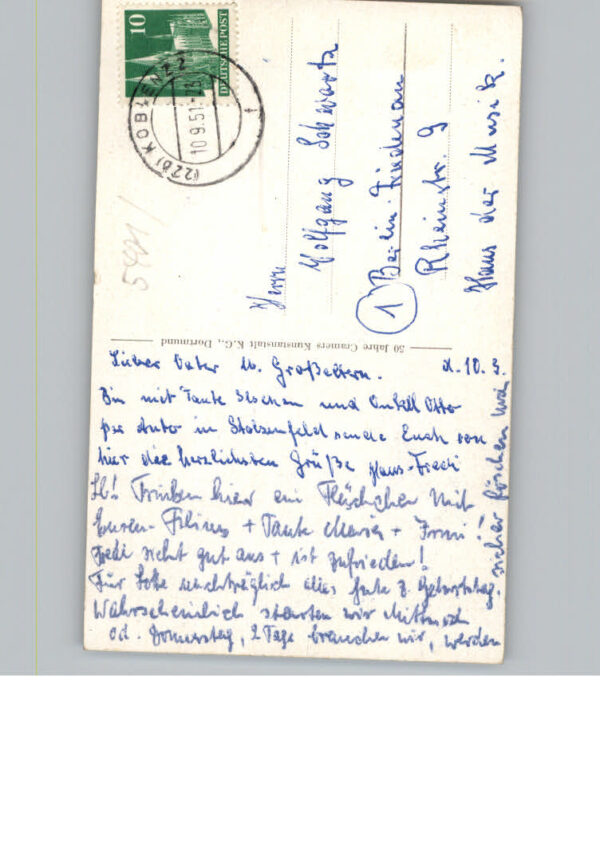 10
DEUTSCHE POST
(22b) KOBLENZ 2
10.9.51
5401/
Herrn
Wolfgang Schwartz
(1) Berlin-Friedenau
Rheinstr. 9
Haus der Musik.
50 Jahre Cramers Kunstanstalt K.G., Dortmund
Lieber Vater u. Großeltern. d. 10. 9.
Bin mit Tante und Onkel Otto
per Auto in Stolzenfels sende Euch von
hier die herzlichsten Grüße Hans-Fredi
Lb! Trinken hier ein Fläschchen mit
Euren + Tante Maria + Irmi!
Fredi sieht gut aus + ist zufrieden!
Für nachträglich alles Gute z. Geburtstag.
Wahrscheinlich starten wir Mittwoch
od. Donnerstag, 2 Tage brauchen wir, werden
sicher